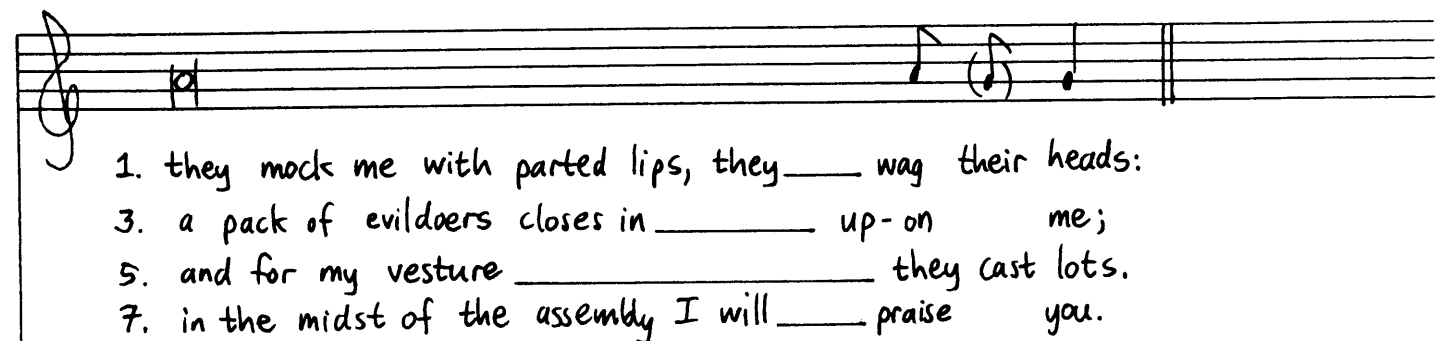 1. they mock me with parted lips, they____ wag their heads:
3. a pack of evildoers closes in________ up-on me;
5. and for my vesture __________________ they cast lots.
7. in the midst of the assembly I will____ praise you.